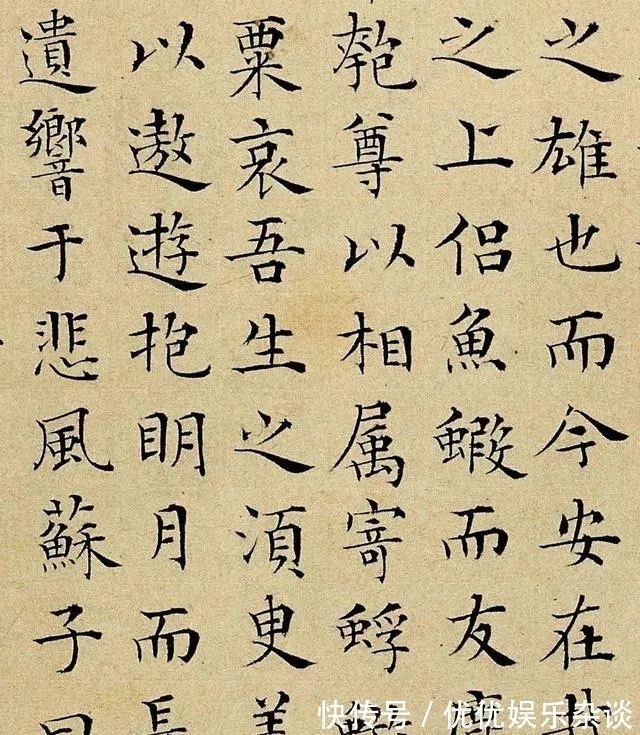 之雄也而今安在
之上侶魚蝦而友
匏尊以相属寄蜉
粟哀吾生之湏臾
以遨遊抱眀月而長
遺響于悲風蘇子曰
快传号 / 优优娱乐杂谈